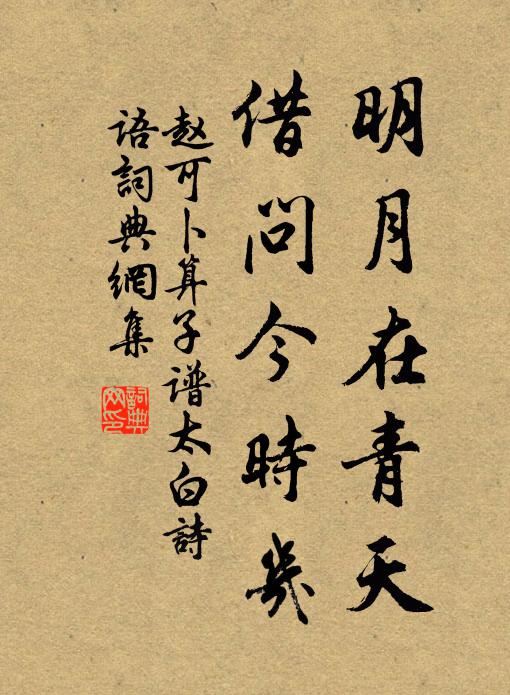 明月在青天
借問今時幾
赵可卜算子谱太白詩
语詞典網集
詞典
网印